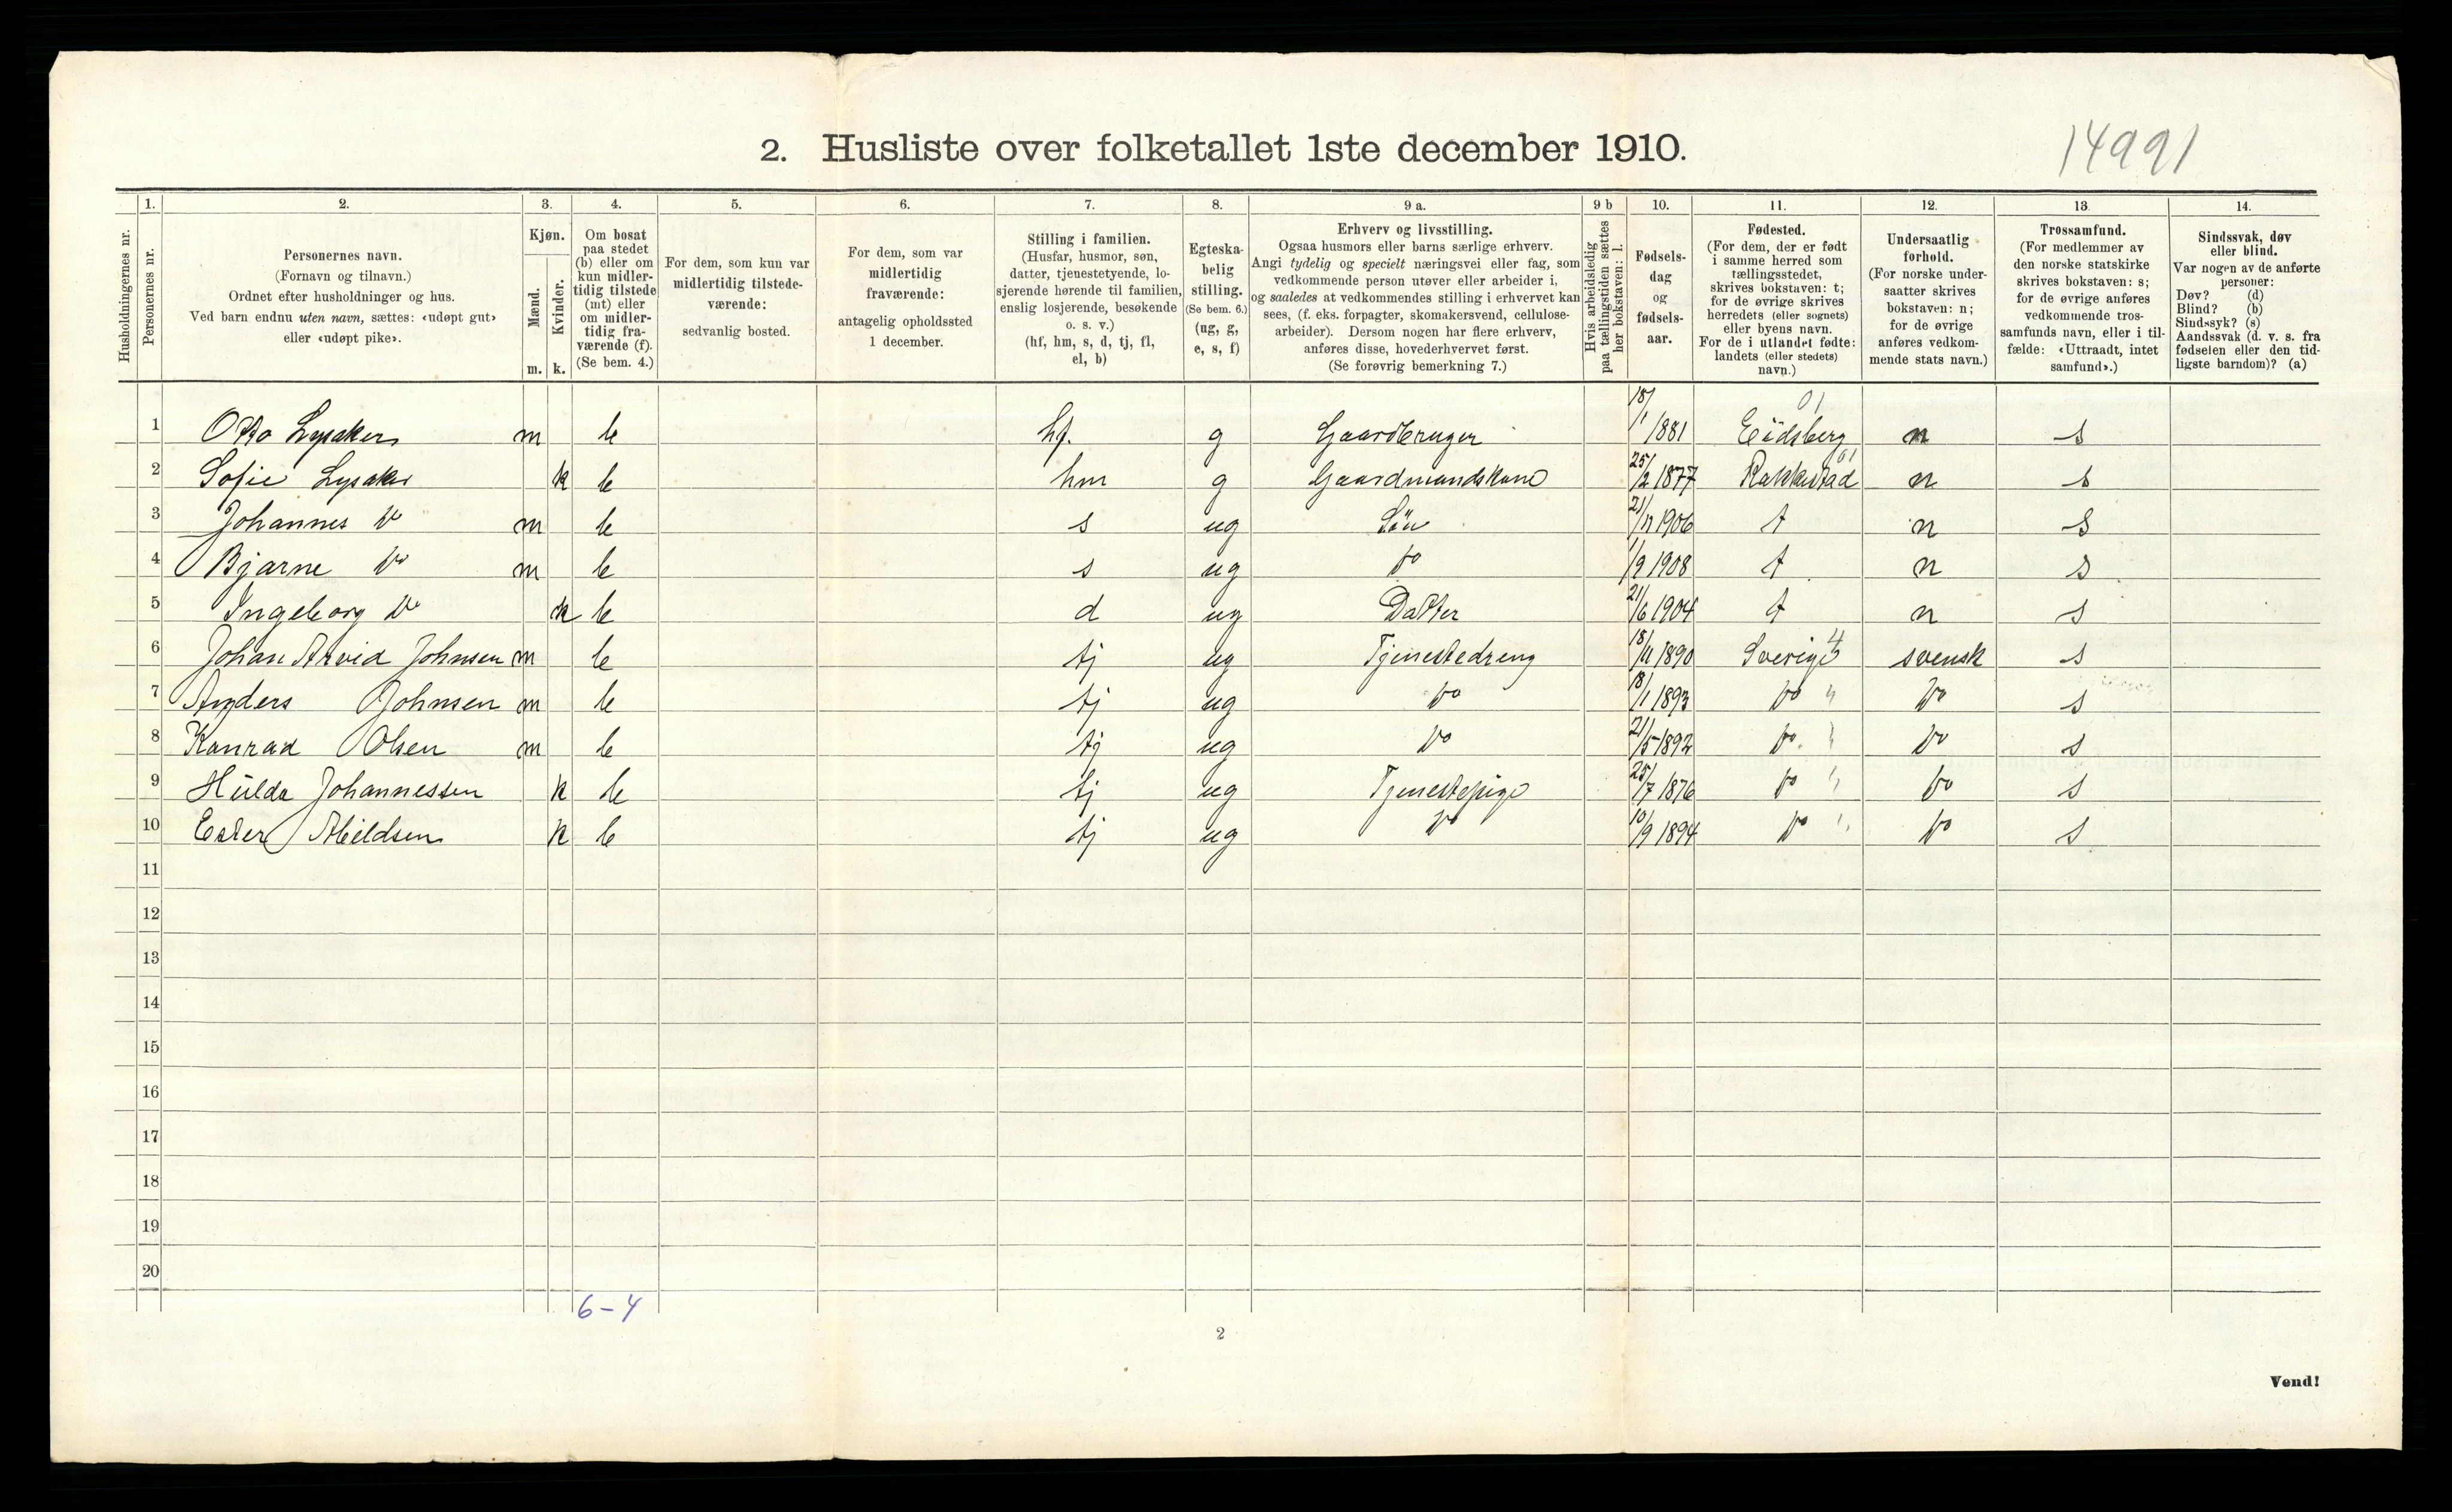 2. Husliste over folketallet 1ste december 1910.
14991
1. 2. 3. 4. 5. 6. 7. 8. 9 a. 9 b 10. 11. 12. 13. 14.
Husholdningernes nr.
Personernes nr.
Personernes navn.
(Fornavn og tilnavn.)
Ordnet efter husholdninger og hus.
Ved barn endnu uten navn, sættes: «udøpt gut»
eller «udøpt pike».
Kjøn.
Mænd.
Kvinder.
m. k.
Om bosat
paa stedet
(b) eller om
kun midler-
tidig tilstede
(mt) eller
om midler-
tidig fra-
værende (f).
(Se bem. 4.)
For dem, som kun var
midlertidig tilstede-
værende:
sedvanlig bosted.
For dem, som var
midlertidig
fraværende:
antagelig opholdssted
1 december.
Stilling i familien.
(Husfar, husmor, søn,
datter, tjenestetyende, lo-
sjerende hørende til familien,
enslig losjerende, besøkende
o. s. v.)
(hf, hm, s, d, tj, fl,
el, b)
Egteska-
belig
stilling.
(Se bem. 6.)
(ug, g,
e, s, f)
Erhverv og livsstilling.
Ogsaa husmors eller barns særlige erhverv.
Angi tydelig og specielt næringsvei eller fag, som
vedkommende person utøver eller arbeider i,
og saaledes at vedkommendes stilling i erhvervet kan
sees, (f. eks. forpagter, skomakersvend, cellulose-
arbeider). Dersom nogen har flere erhverv,
anføres disse, hovederhvervet først.
(Se forøvrig bemerkning 7.)
Hvis arbeidsledig
paa tællingstiden sættes
her bokstaven: l.
Fødsels-
dag
og
fødsels-
aar.
Fødested.
(For dem, der er født
i samme herred som
tællingsstedet,
skrives bokstaven: t;
for de øvrige skrives
herredets (eller sognets)
eller byens navn.
For de i utlandet fødte:
landets (eller stedets)
navn.)
Undersaatlig
forhold.
(For norske under-
saatter skrives
bokstaven: n;
for de øvrige
anføres vedkom-
mende stats navn.)
Trossamfund.
(For medlemmer av
den norske statskirke
skrives bokstaven: s;
for de øvrige anføres
vedkommende tros-
samfunds navn, eller i til-
fælde: «Uttraadt, intet
samfund».)
Sindssvak, døv
eller blind.
Var nogen av de anførte
personer:
Døv? (d)
Blind? (b)
Sindssyk? (s)
Aandssvak (d. v. s. fra
fødselen eller den tid-
ligste barndom)? (a)
1 Otto Lysaker m b hf. g Gaardbruger 18/1 1881 Eidsberg 01 n s
2 Sofie Lysaker k b hm g Gaardmandskone 25/2 1877 Rakkestad 01 n s
3 Johannes Do m b s ug Sön 21/11 1906 t n s
4 Bjarne Do m b s ug Do 1/9 1908 t n s
5 Ingeborg Do k b d ug Datter 21/6 1904 t n s
6 Johan Arvid Johnsen m b tj ug Tjenestedreng 18/11 1890 Sverige 4 svensk s
7 Anders Johnsen m b tj ug Do 18/1 1893 Do " Do s
8 Konrad Olsen m b tj ug Do 21/5 1892 Do Do s
9 Hulda Johannessen k b tj ug Tjenestepige 25/7 1876 Do " Do s
10 Ester k b tj ug Do 10/9 1894 Do " Do s
11
12
13
14
15
16
17
18
19
20
6-4
2
Vend!